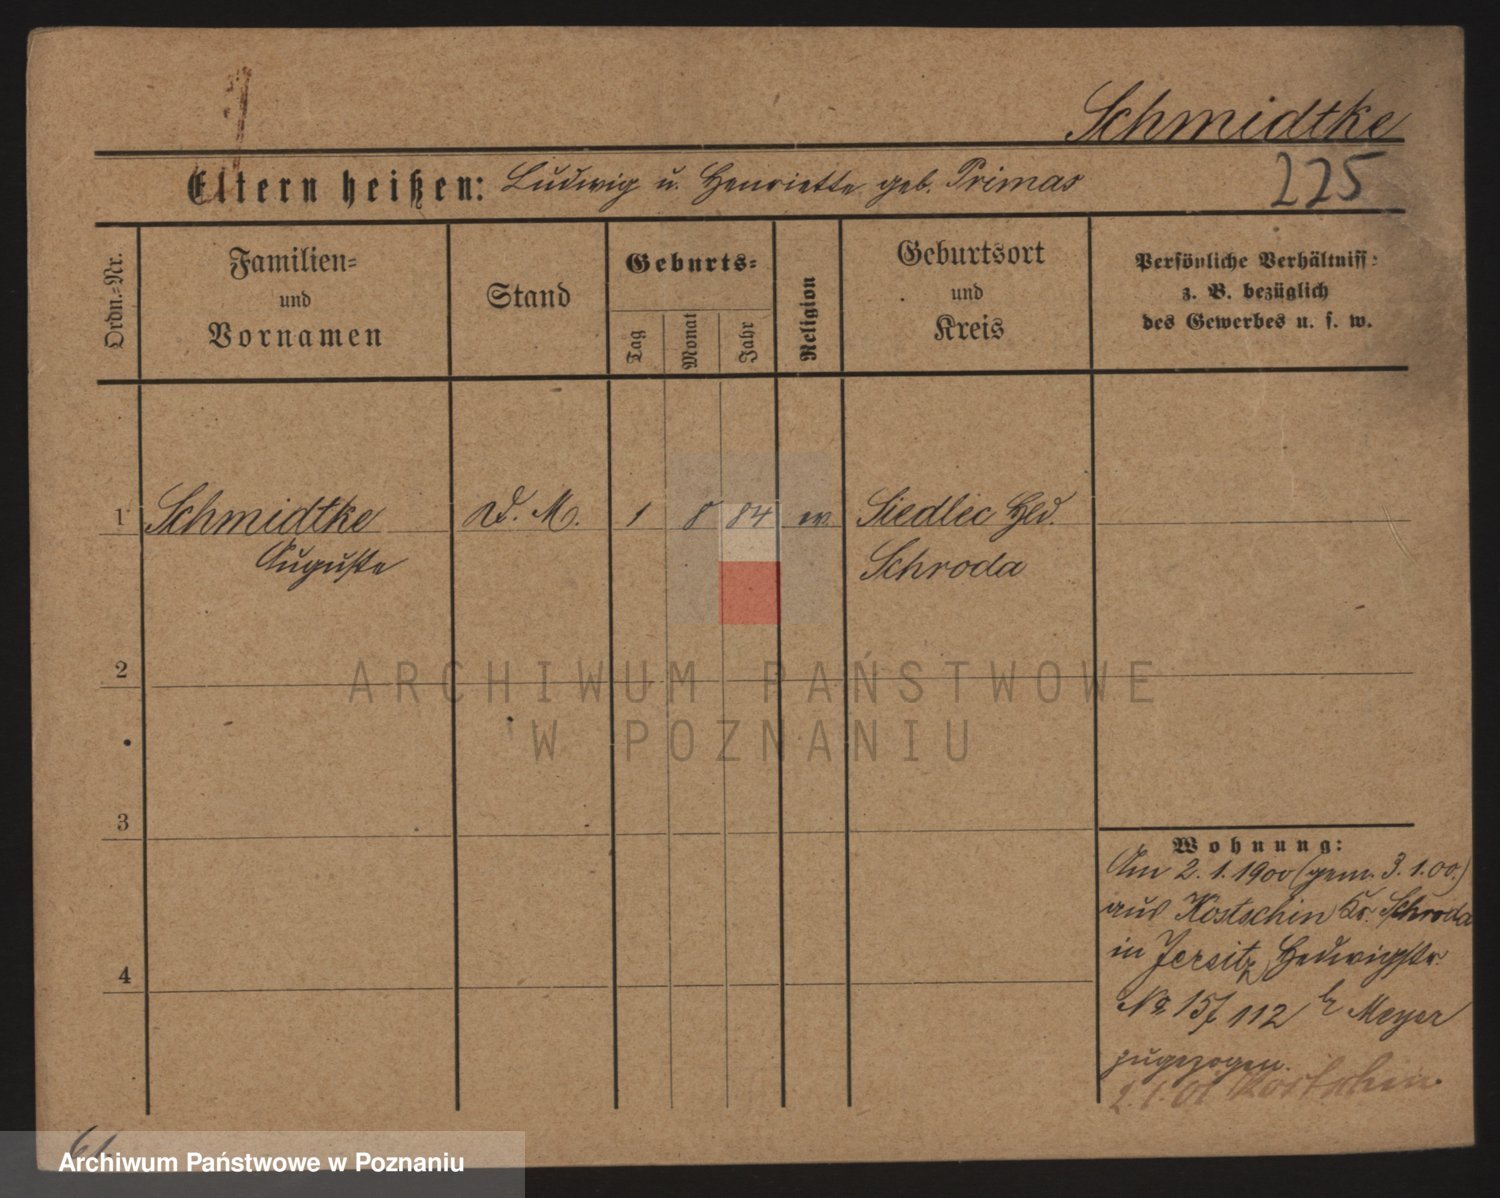 Schmidtke
Eltern heißen: Ludwig u. Henriette geb. Primas
225
Ordn.-Nr.
Familien-
und
Vornamen
Stand
Geburts-
Tag
Monat
Jahr
Religion
Geburtsort
und
Kreis
Persönliche Verhältniss-
z. B. bezüglich
des Gewerbes u. s. w.
1 Schmidtke D. M. 1 8 84 ev. Siedlec Hld.
Auguste Schroda
2
ARCHIWUM PAŃSTWOWE
W POZNANIU
3
Wohnung:
Am 2. 1. 1900 (gem. 3. 1. 00.)
aus Kostschin Kr. Schroda
in Jersitz, Hedwigstr.
4
No 15/112 b. Meyer
zugezogen.
2.1.01 Kostschin.
61
Archiwum Państwowe w Poznaniu